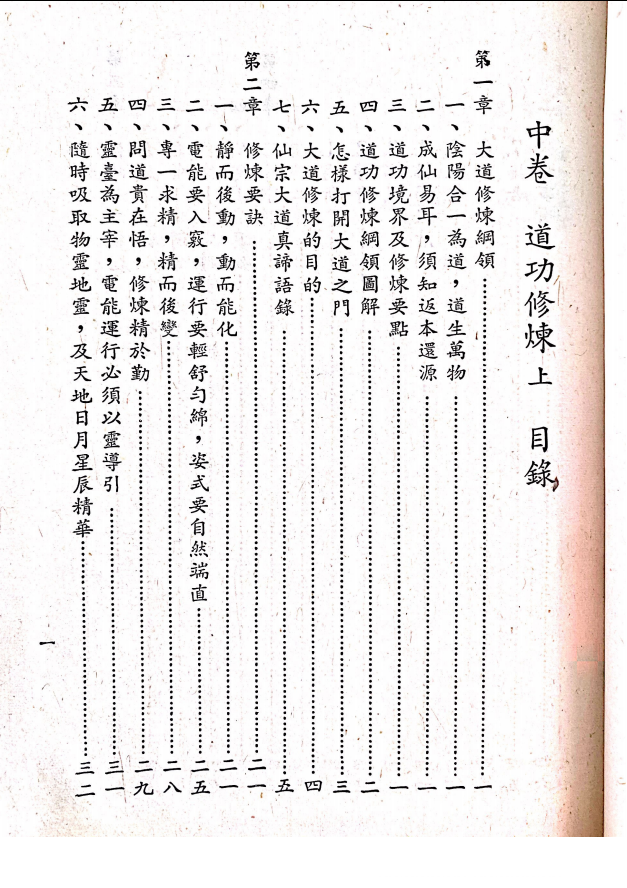 中卷　道功修煉上　目錄
第一章　大道修煉綱領……一
一、陰陽合一為道，道生萬物……一
二、成仙易耳，須知返本還源……一
三、道功境界及修煉要點……一
四、道功修煉綱領圖解……二
五、怎樣打開大道之門……三
六、大道修煉的目的……四
七、仙宗大道真諦語錄……五
第二章　修煉要訣……二一
一、靜而後動，動而能化……二一
二、電能要入竅，運行要輕舒勻綿，姿式要自然端直……二五
三、專一求精，精而後變……二八
四、問道貴在悟，修煉精於勤……二九
五、靈臺為主宰，電能運行必須以靈導引……三一
六、隨時吸取物靈地靈，及天地日月星辰精華……三二
一